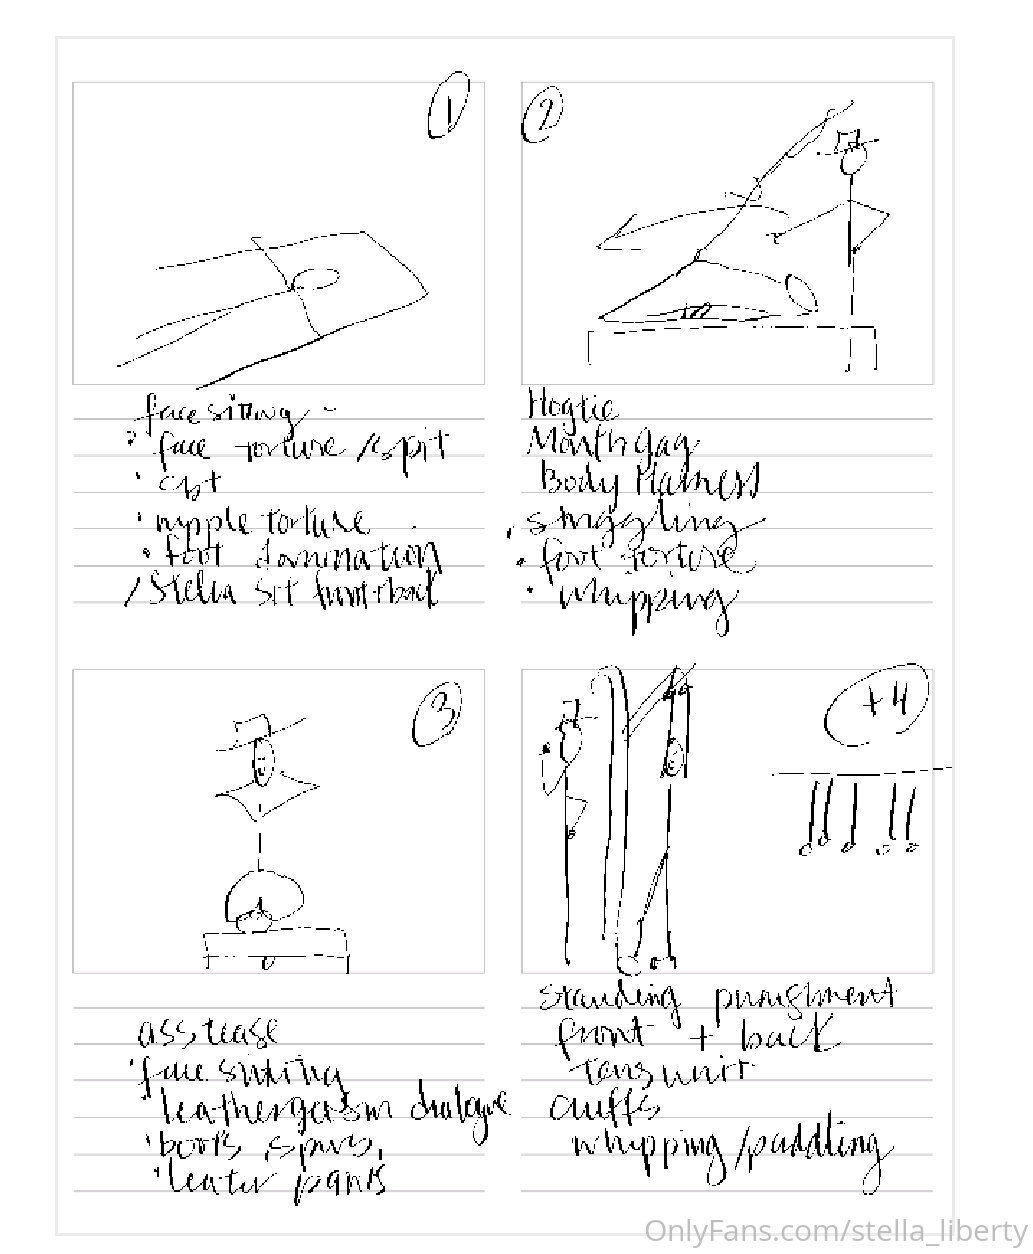 1
facesitting -
· face torture /spit
· cbt
· nipple torture
· foot domination
/ Stella sit front + back
2
Hogtie
Mouth gag
Body Harness
struggling
· foot torture
· whipping
3
ass tease
· face sitting
leather dialogue
· boots, spurs,
· leater pants
+4
standing punishment
front + back
Tens unit
cuffs
whipping /paddling
OnlyFans.com/stella_liberty